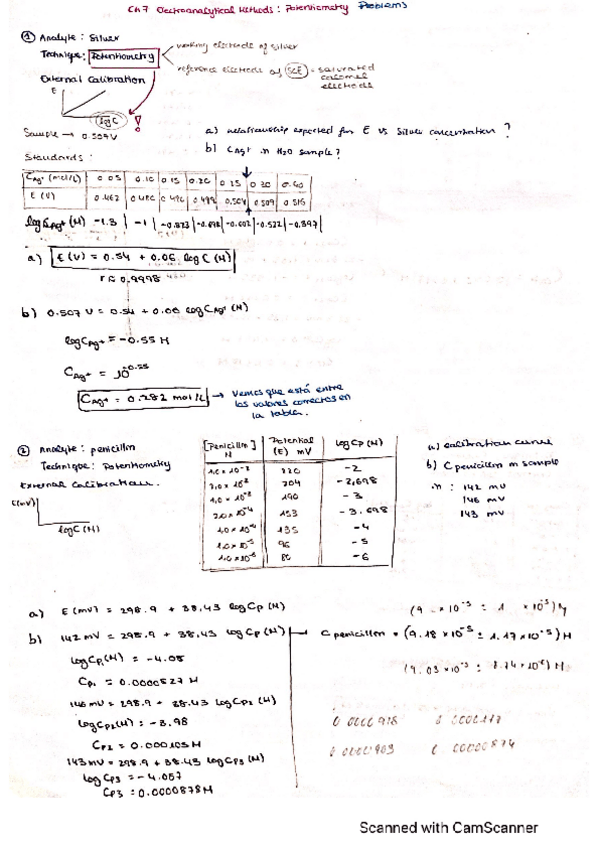 Ch 7 Electroanalytical Methods: Potentiometry Problems
① Analyte: Silver
Technique: Potentiometry
working electrode of silver
reference electrode of SCE = saturated calomel electrode
External Calibration
E
log C
!
Sample → 0.507V
a) relationship expected for E vs Silver concentration?
b) CAg+ in H2O sample?
Standards:
CAg+ (mol/L) 0.05 0.10 0.15 0.20 0.25 0.30 0.40
E (V) 0.462 0.509 0.516
log CAg+ (M) -1.3 | -1 | -0.823 | -0.698 | -0.602 | -0.522 | -0.397
a) E(V) = 0.54 + 0.06 log C (M)
r = 0.9998
b) 0.507 V = 0.54 + 0.06 log CAg+ (M)
log CAg+ = -0.55 M
CAg+ = 10^-0.55
CAg+ = 0.282 mol/L → Vemos que está entre
los valores correctos en
la tabla.
② Analyte: penicillin
Technique: Potentiometry
External Calibration.
E(mV)
log C (M)
[Penicillin] M Potential (E) mV log Cp (M)
1.0 x 10^-2 220 -2
204 -2,698
190 -3
153 -3.698
1.0 x 10^-4 135 -4
1.0 x 10^-5 96 -5
1.0 x 10^-6 80 -6
a) calibration curve
b) C penicillin in sample
in: 142 mV
146 mV
143 mV
a) E (mV) = 298.9 + 38.43 log Cp (M)
b) 142 mV = 298.9 + 38.43 log Cp (M)
log Cp1 (M) = -4.08
Cp1 = 0.0000827 M
146 mV = 298.9 + 38.43 log Cp2 (M)
log Cp2 (M) = -3.98
Cp2 = 0.000105 M
143 mV = 298.9 + 38.43 log Cp3 (M)
log Cp3 = -4.057
Cp3 = 0.0000878 M
C penicillin = (9.18 x 10^-5 ± 1.17 x 10^-5) M
0.0000918
0.0000903 0.00000874
Scanned with CamScanner